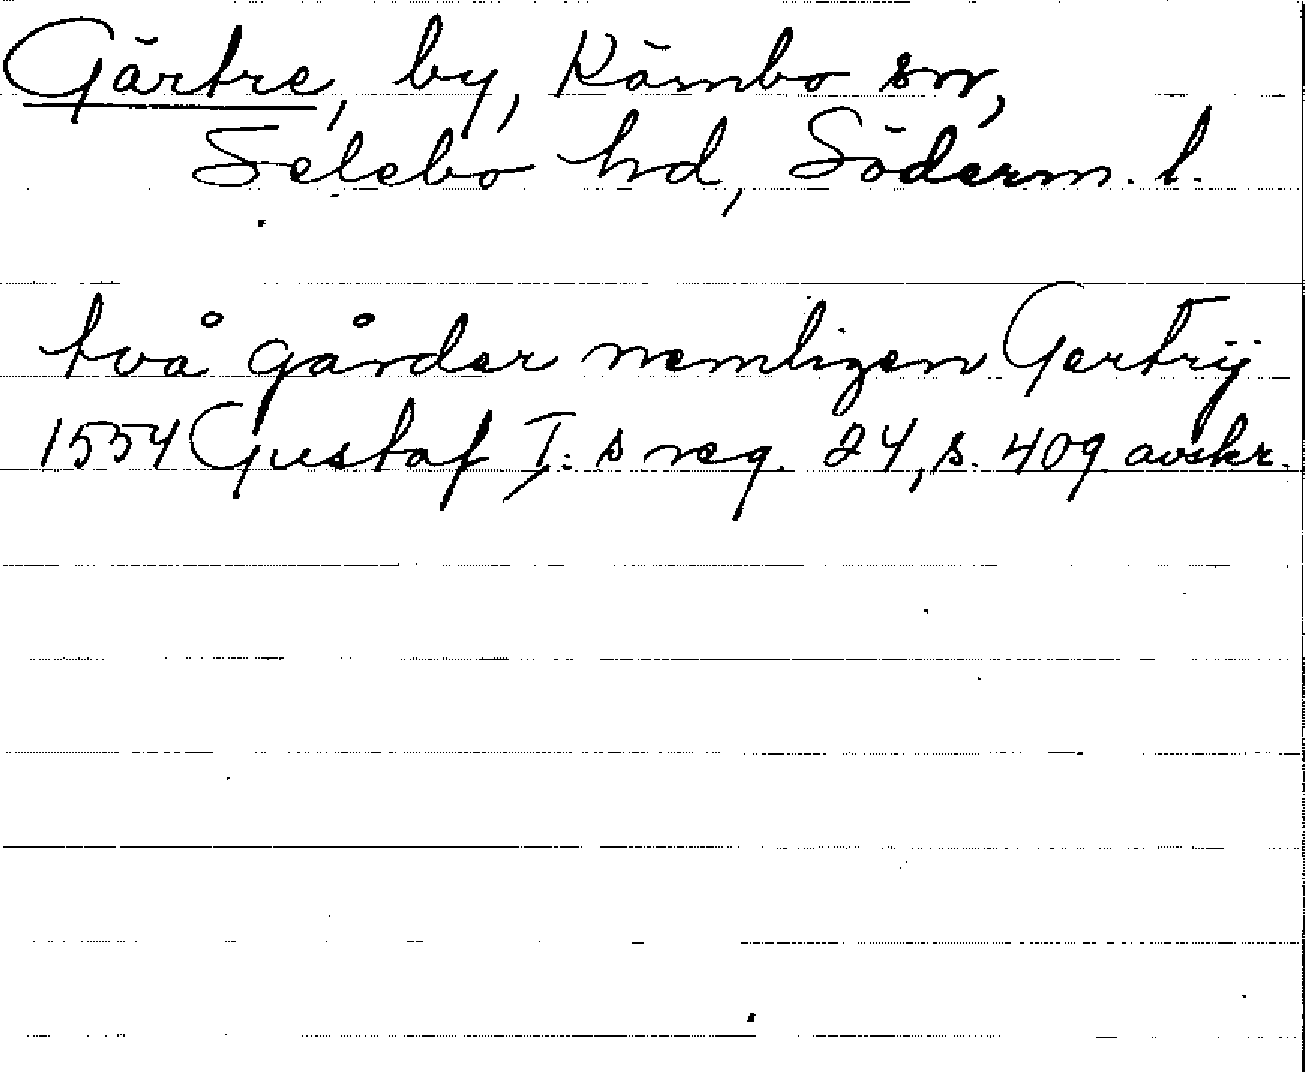 Gärtre, by, Kärnbo sn,
Selebo hd, Söderm. l.
två gårder nemligen Gertrÿ
1554 Gustaf I:s reg. 24, s. 409 avskr.